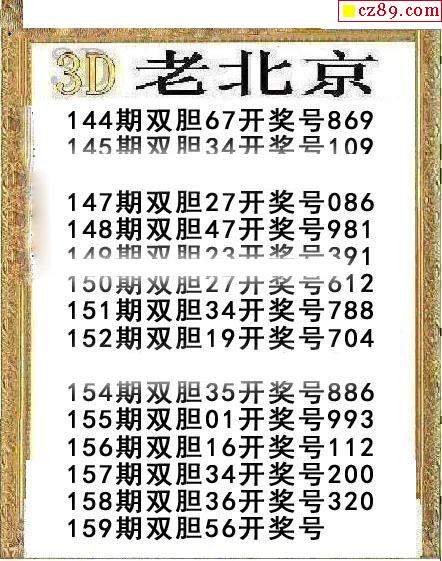 cz89.com
3D 老北京
144期双胆67开奖号869
145期双胆34开奖号109
147期双胆27开奖号086
148期双胆47开奖号981
149期双胆23开奖号391
150期双胆27开奖号612
151期双胆34开奖号788
152期双胆19开奖号704
154期双胆35开奖号886
155期双胆01开奖号993
156期双胆16开奖号112
157期双胆34开奖号200
158期双胆36开奖号320
159期双胆56开奖号